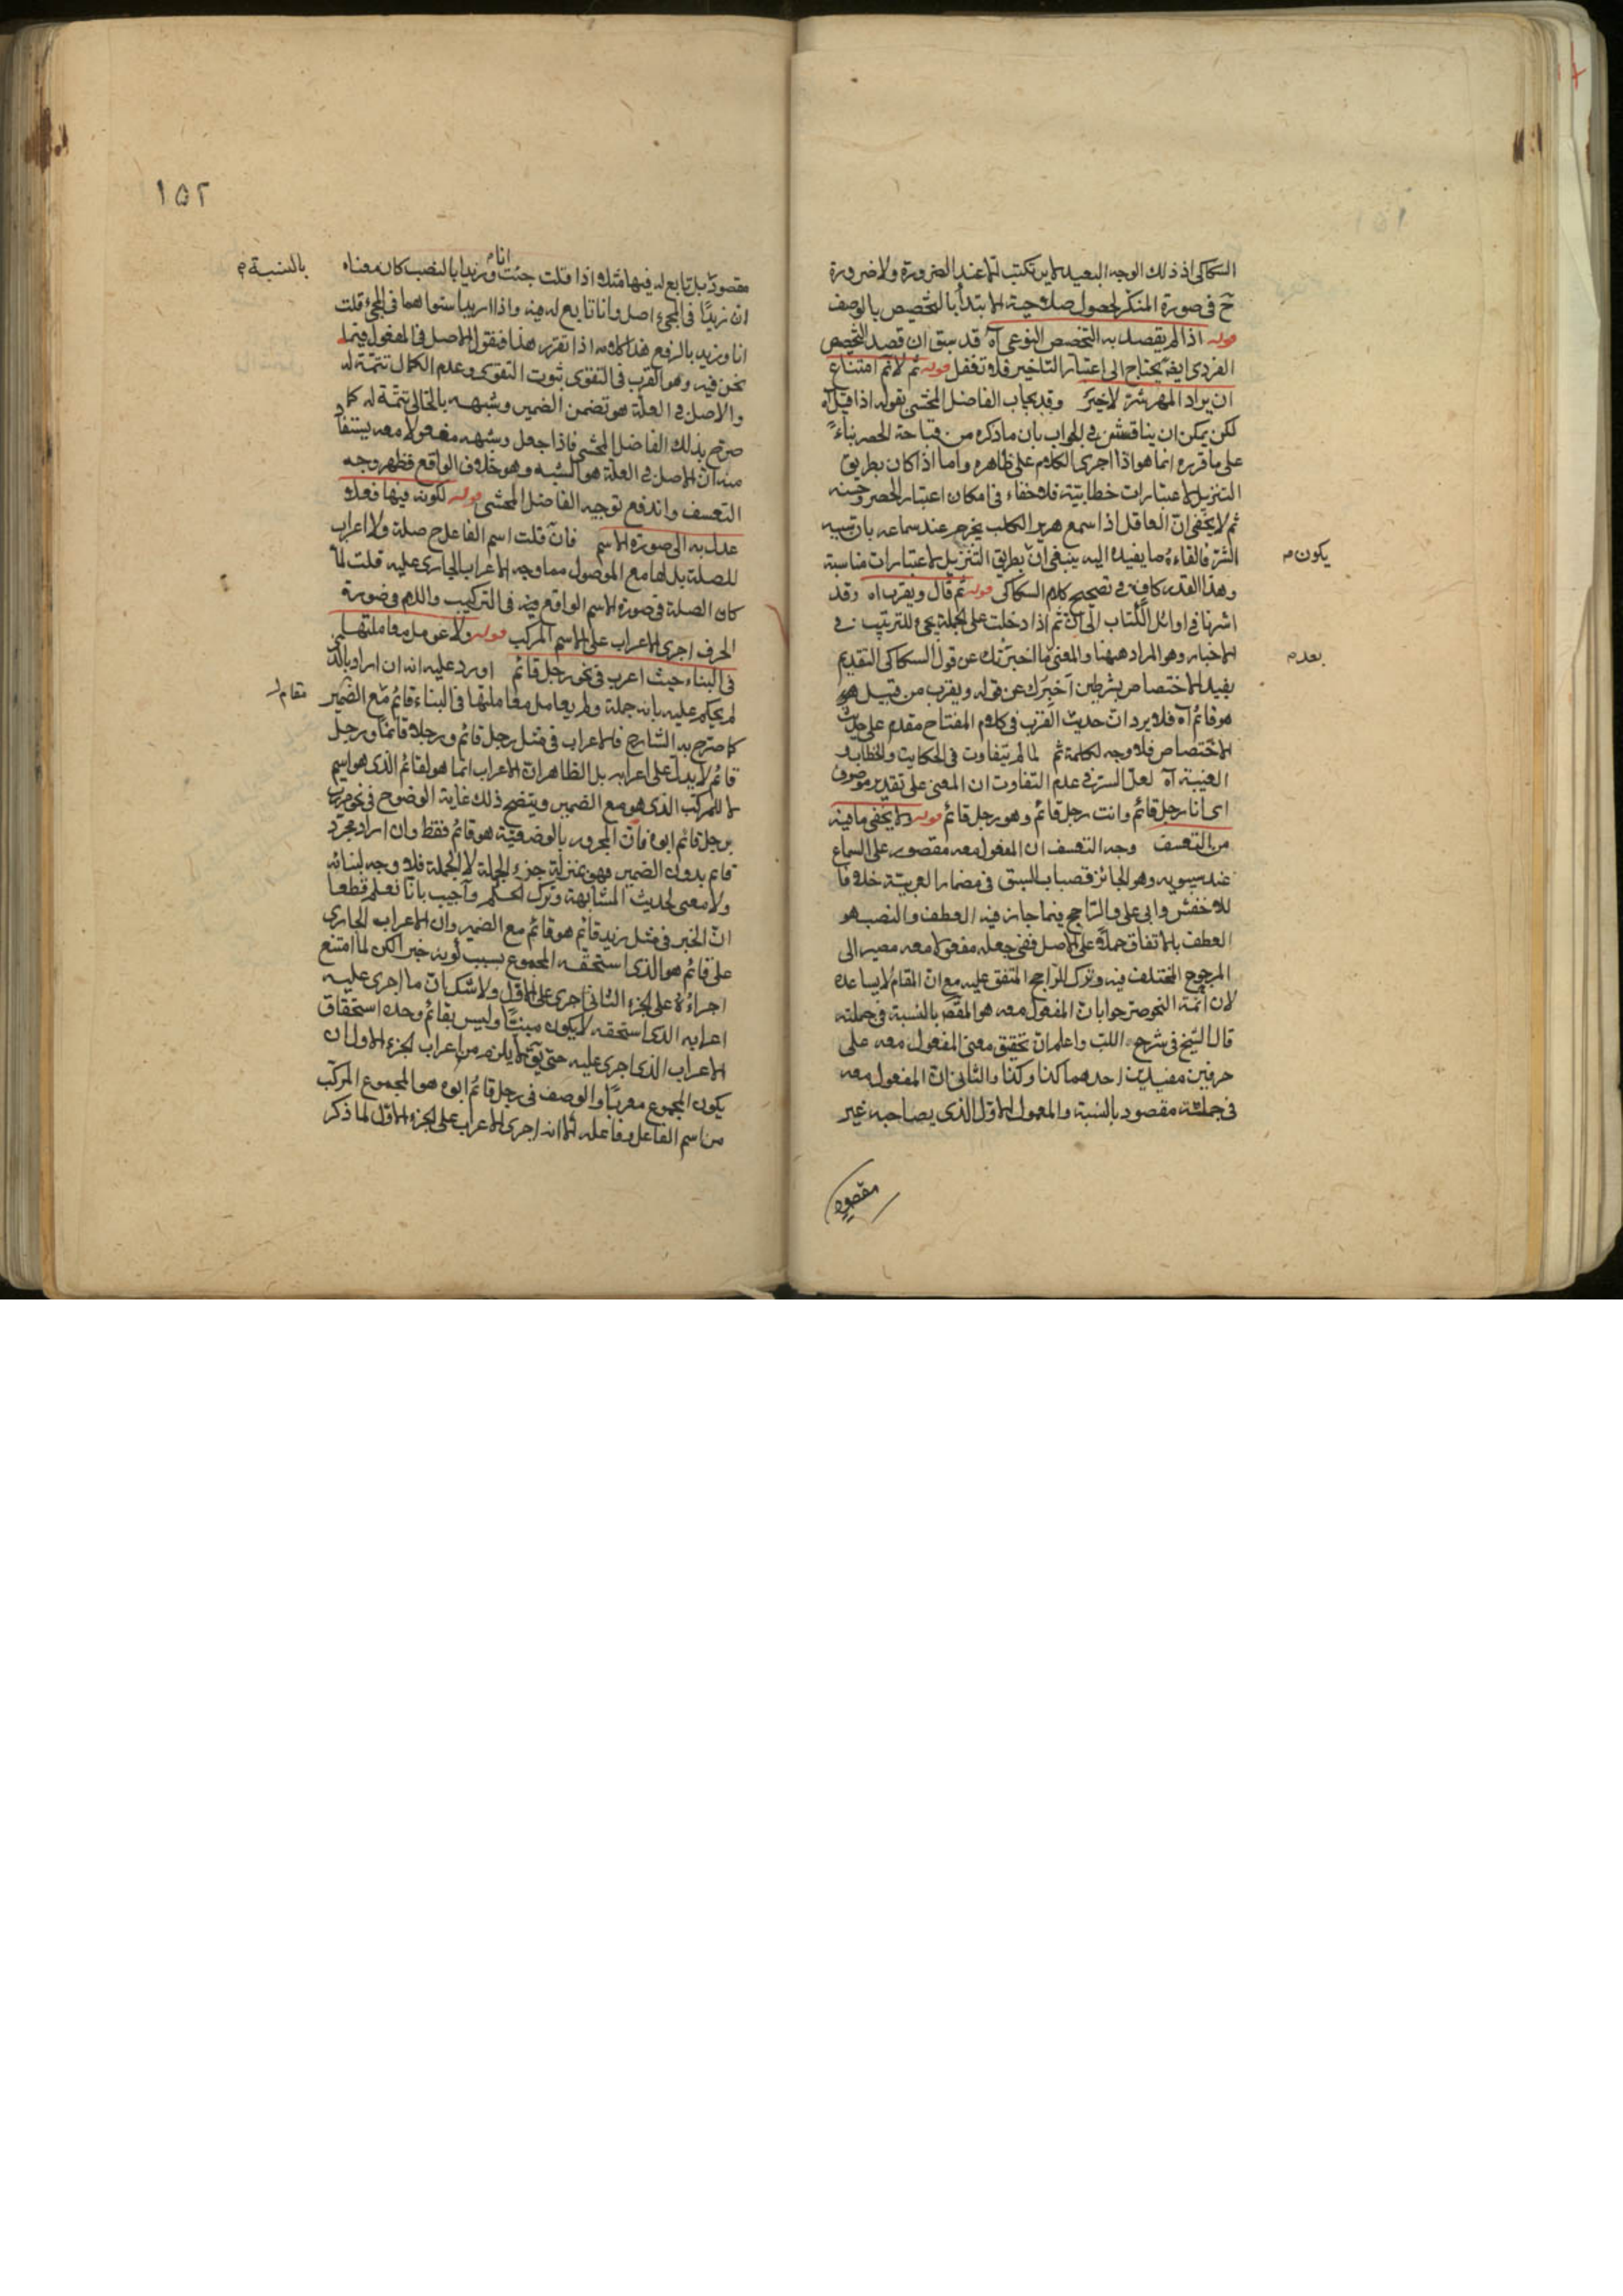 السكاكى اذ ذلك الوجه البعيد لا يرتكب الا عند الضرورة ولا ضرورة
ح فى صورة المنكر لحصول صلاحية الابتدأ بالتخصيص بالوصف
قوله اذا لم يقصد به التخصص النوعى آه قد سبق ان قصد التخصص
الفردى ايضا يحتاج الى اعتبار التاخير فلا تغفل قوله ثم لا نم امتناع
ان يراد المهر شر لا خير وقد يجاب الفاضل المحشى بقوله اذا قيل آه
لكن يمكن ان يناقش فى الجواب بان ما ذكره من قباحة الحصر بناءً
على ما قرره انما هو اذا اجرى الكلام على ظاهره واما اذا كان بطريق
التنزيل لاعتبارات خطابية فلا خفاء فى امكان اعتبار الحصر وحسنه
ثم لا يخفى ان العاقل اذا سمع هرير الكلب يجزم عند سماعه بان سببه
الشر فالقاءه ما يفيده اليه ينبغى ان بطريق التنزيل لاعتبارات مناسبة
يكون م
وهذا القدر كاف فى تصحيح كلام السكاكى قوله ثم قال ويقرب اه وقد
اشرنا فى اوائل الكتاب الى ان ثم اذا دخلت على الجملة يجئ للترتيب فى
الاخبار وهو المراد ههنا والمعنى ما اخبرتك عن قول السكاكى التقديم
بعد م
يفيد الاختصاص بشرطين اخبرك عن قوله ويقرب من قبيل هو
هو قائم آه فلا يرد ان حديث القرب فى كلام المفتاح مقدم على حديث
الاختصاص فلا وجه لكلمة ثم لما لم يتفاوت فى الحكاية والخطاب و
الغيبة آه لعل السر فى عدم التفاوت ان المعنى على تقدير موصوف
اى انا رجل قائم وانت رجل قائم وهو رجل قائم قوله ولا يخفى ما فيه
من التعسف وجه التعسف ان المفعول معه مقصور على السماع
عند سيبويه وهو الحائز قصبات السبق فى مضمار العربية خلافا
للاخفش وابى على والراجح فيما جاز فيه العطف والنصب هو
العطف بالاتفاق حملا على الاصل ففى جعله مفعولا معه مصير الى
المرجوح المختلف فيه وترك للراجح المتفق عليه مع ان المقام لا يساعده
لان ائمة النحو صرحوا بان المفعول معه هو المقصود بالنسبة فى جملته
قال الشيخ فى شرح اللب واعلم ان تحقيق معنى المفعول معه على
حرفين مفيدين احدهما كذا وكذا والثانى ان المفعول معه
فى جملته مقصود بالنسبة والمعمول الاول الذى يصاحبه غير
مقصود
١٥٢
مقصود بل تابع له فيها مثلا اذا قلت جئت انا وزيدا بالنصب كان معناه
بالنسبة م
ان زيدًا فى المجئ اصل وانا تابع له فيه واذا اريد استواهما فى المجئ قلت
انا وزيد بالرفع هذا كلامه اذا تقرر هذا فنقول الاصل فى المفعول فيما
نحن فيه وهو القرب فى التقوى ثبوت التقوى وعدم الكمال تتمة له
والاصل فى العلة هو تضمن الضمير وشبهه بالخالى تتمة له كما
صرح بذلك الفاضل المحشى فاذا جعل وشبهه مفعولا معه يستفاد
منه ان الاصل فى العلة هو الشبه وهو خلاف الواقع فظهر وجه
التعسف واندفع توجيه الفاضل المحشى قوله لكونه فيها فعلا
عدل به الى صورة الاسم فان قلت اسم الفاعل ح صلة ولا اعراب
للصلة بل لها مع الموصول فما وجه الاعراب الجارى عليه قلت لما
كان الصلة فى صورة الاسم الواقع فيه فى التركيب واللام فى صورة
الحرف اجرى الاعراب على الاسم المركب قوله ولا عومل معاملتها
فى البناء حيث اعرب فى نحو رجل قائم اورد عليه انه ان اراد بالذى
لم يحكم عليه بانه جملة ولم يعامل معاملتها فى البناء قائم مع الضمير
كما صرح به الشارح فالاعراب فى مثل رجل قائم ورجلا قائما ورجل
قائم لا يدل على اعرابه بل الظاهر ان الاعراب انما هو لقائم الذى هو اسم
لا للمركب الذى هو مع الضمير ويتضح ذلك غاية الوضوح فى نحو مررت
برجل قائم ابوه فان المجرور بالوصفية هو قائم فقط وان اراد مجرد
قائم بدون الضمير فهو بمنزلة جزء الجملة لا الجملة فلا وجه لبنائه
ولا معنى لحديث المشابهة وترك الحكم واجيب بانا نعلم قطعا
ان الخبر فى مثل زيد قائم هو قائم مع الضمير وان الاعراب الجارى
على قائم هو الذى استحقه المجموع بسبب كونه خبرا لكن لما امتنع
اجراؤه على الجزء الثانى اجرى على الاول ولا شك ان ما اجرى عليه
اعرابه الذى استحقه لا يكون مبنيًا وليس بقائم وحده استحقاق
الاعراب الذى اجرى عليه حتى يق لا يلزم من اعراب الجزء الاول ان
يكون المجموع معربًا والوصف فى رجل قائم ابوه هو المجموع المركب
من اسم الفاعل وفاعله الا انه اجرى الاعراب على الجزء الاول لما ذكر